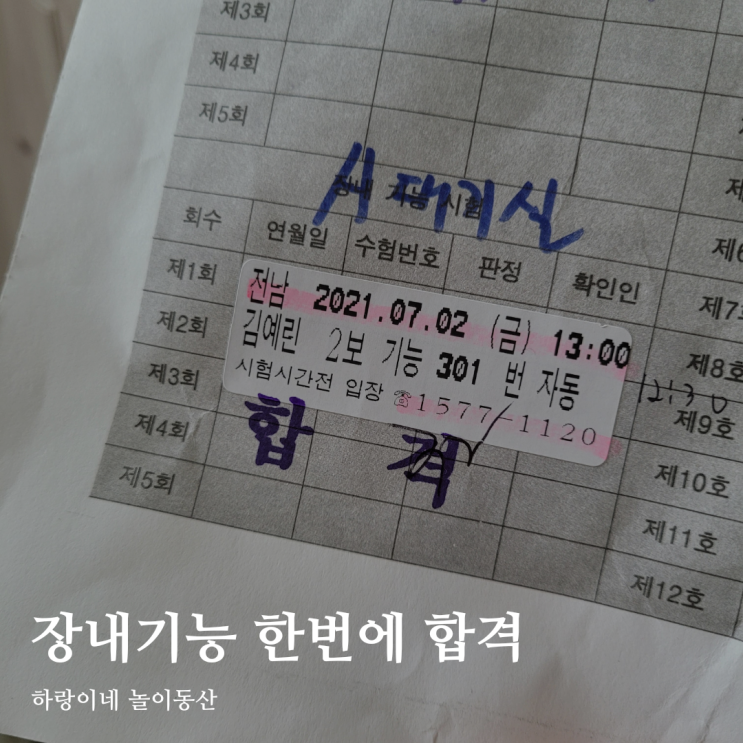 제3회
제4회
제5회
장내 기능 시험
시대기실
회수 연월일 수험번호 판정 확인인
제1회
제2회
제3회
제4회
제5회
전남 2021.07.02 (금) 13:00
김예린 2보 기능 301 번 자동
시험시간전 입장 ☎1577-1120
12:30
합격
제7호
제8호
제9호
제10호
제11호
제12호
장내기능 한번에 합격
하랑이네 놀이동산